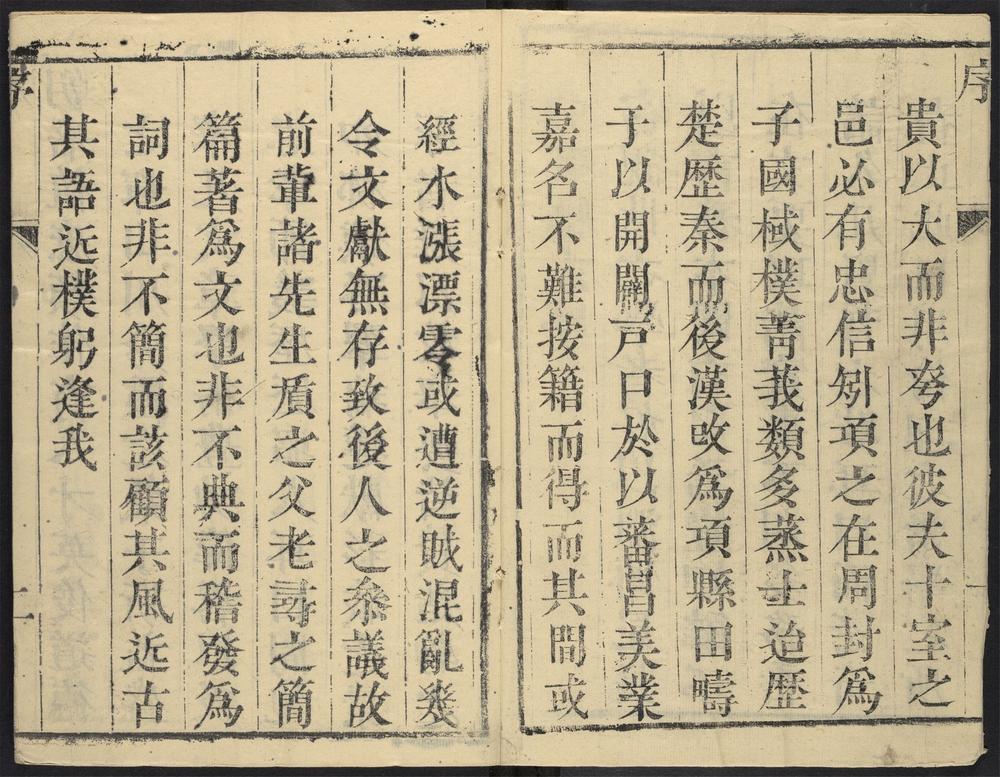 序
貴以大而非夸也彼夫十室之
邑必有忠信矧項之在周封爲
子國棫樸菁莪類多蒸士迨歷
楚歷秦而後漢改爲項縣田疇
于以開闢戸口於以蕃昌美業
嘉名不難按籍而得而其間或
一
經水漲漂零或遭逆賊混亂幾
令文獻無存致後人之叅議故
前軰諸先生質之父老尋之簡
篇著爲文也非不典而稽發爲
詞也非不簡而該顧其風近古
其語近樸躬逢我
序
二